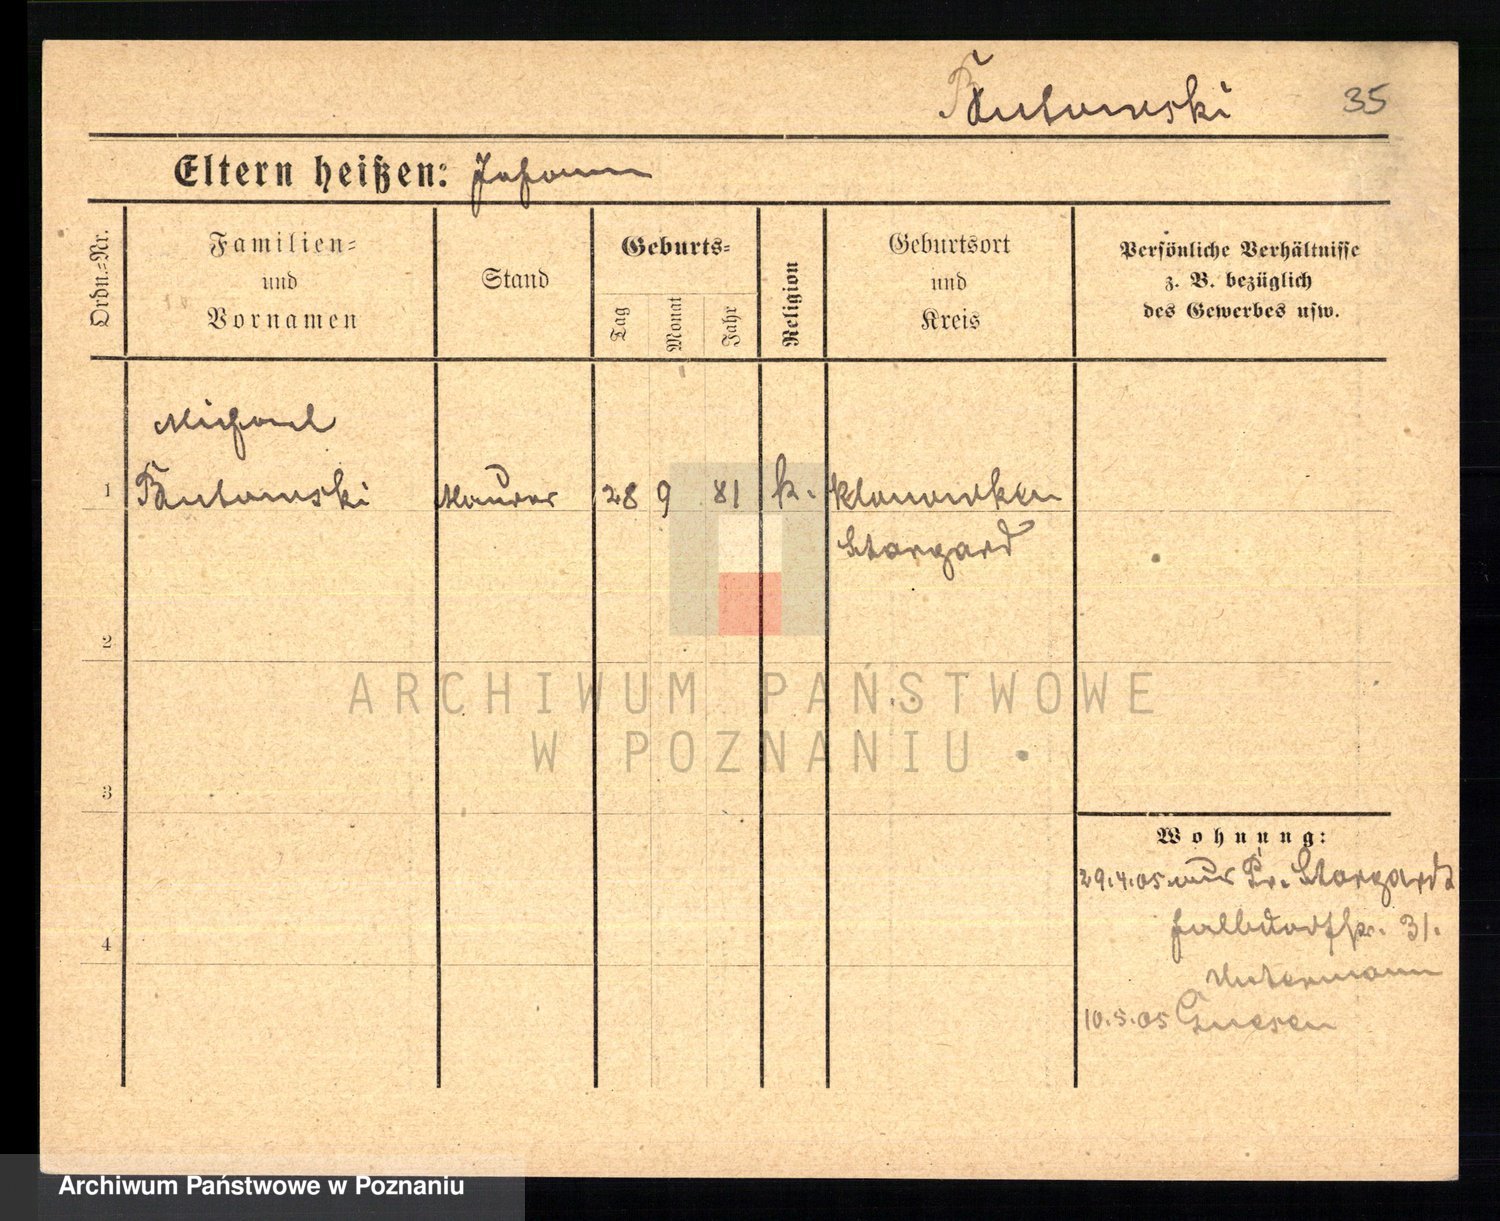 Butowski 35
Eltern heißen: Johann
Ordn.=Nr.
Familien=
und
Vornamen
Stand
Geburts=
Tag
Monat
Jahr
Religion
Geburtsort
und
Kreis
Persönliche Verhältnisse
z. B. bezüglich
des Gewerbes usw.
Michael
1 Butowski Maurer 28 9 81 k. Klonowken
Stargard
2
ARCHIWUM PAŃSTWOWE
W POZNANIU
3
Wohnung:
29.4.05 aus Pr. Stargardt
31.
4
10.5.05 Gnesen
Archiwum Państwowe w Poznaniu